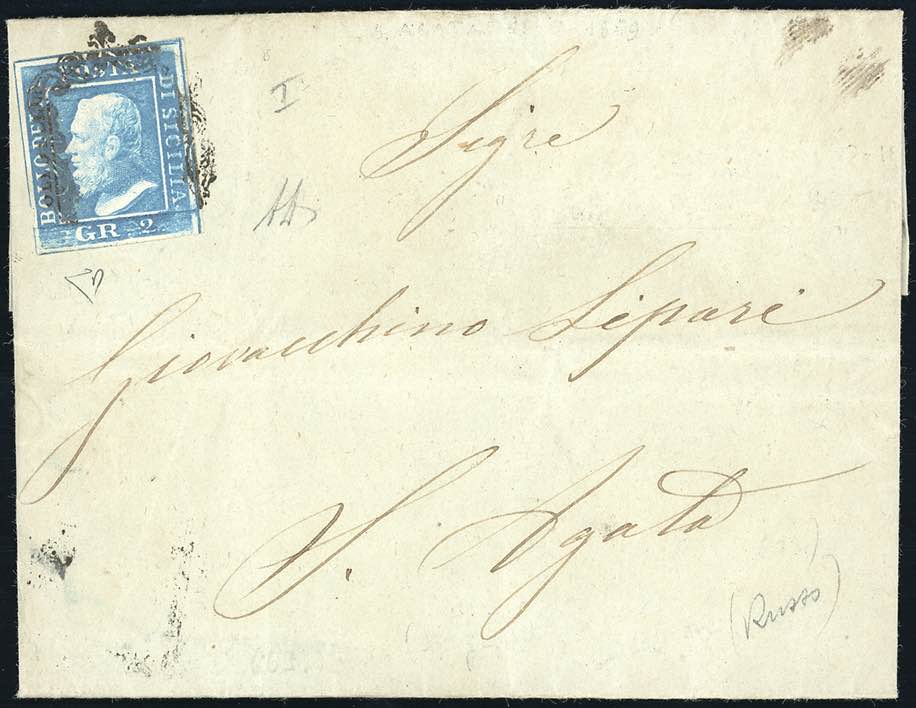 BOLLO DELLA
POSTA
DI SICILIA
GR 2
I
Sigre
Giovacchino Lipari
S. Agata
(Russo)